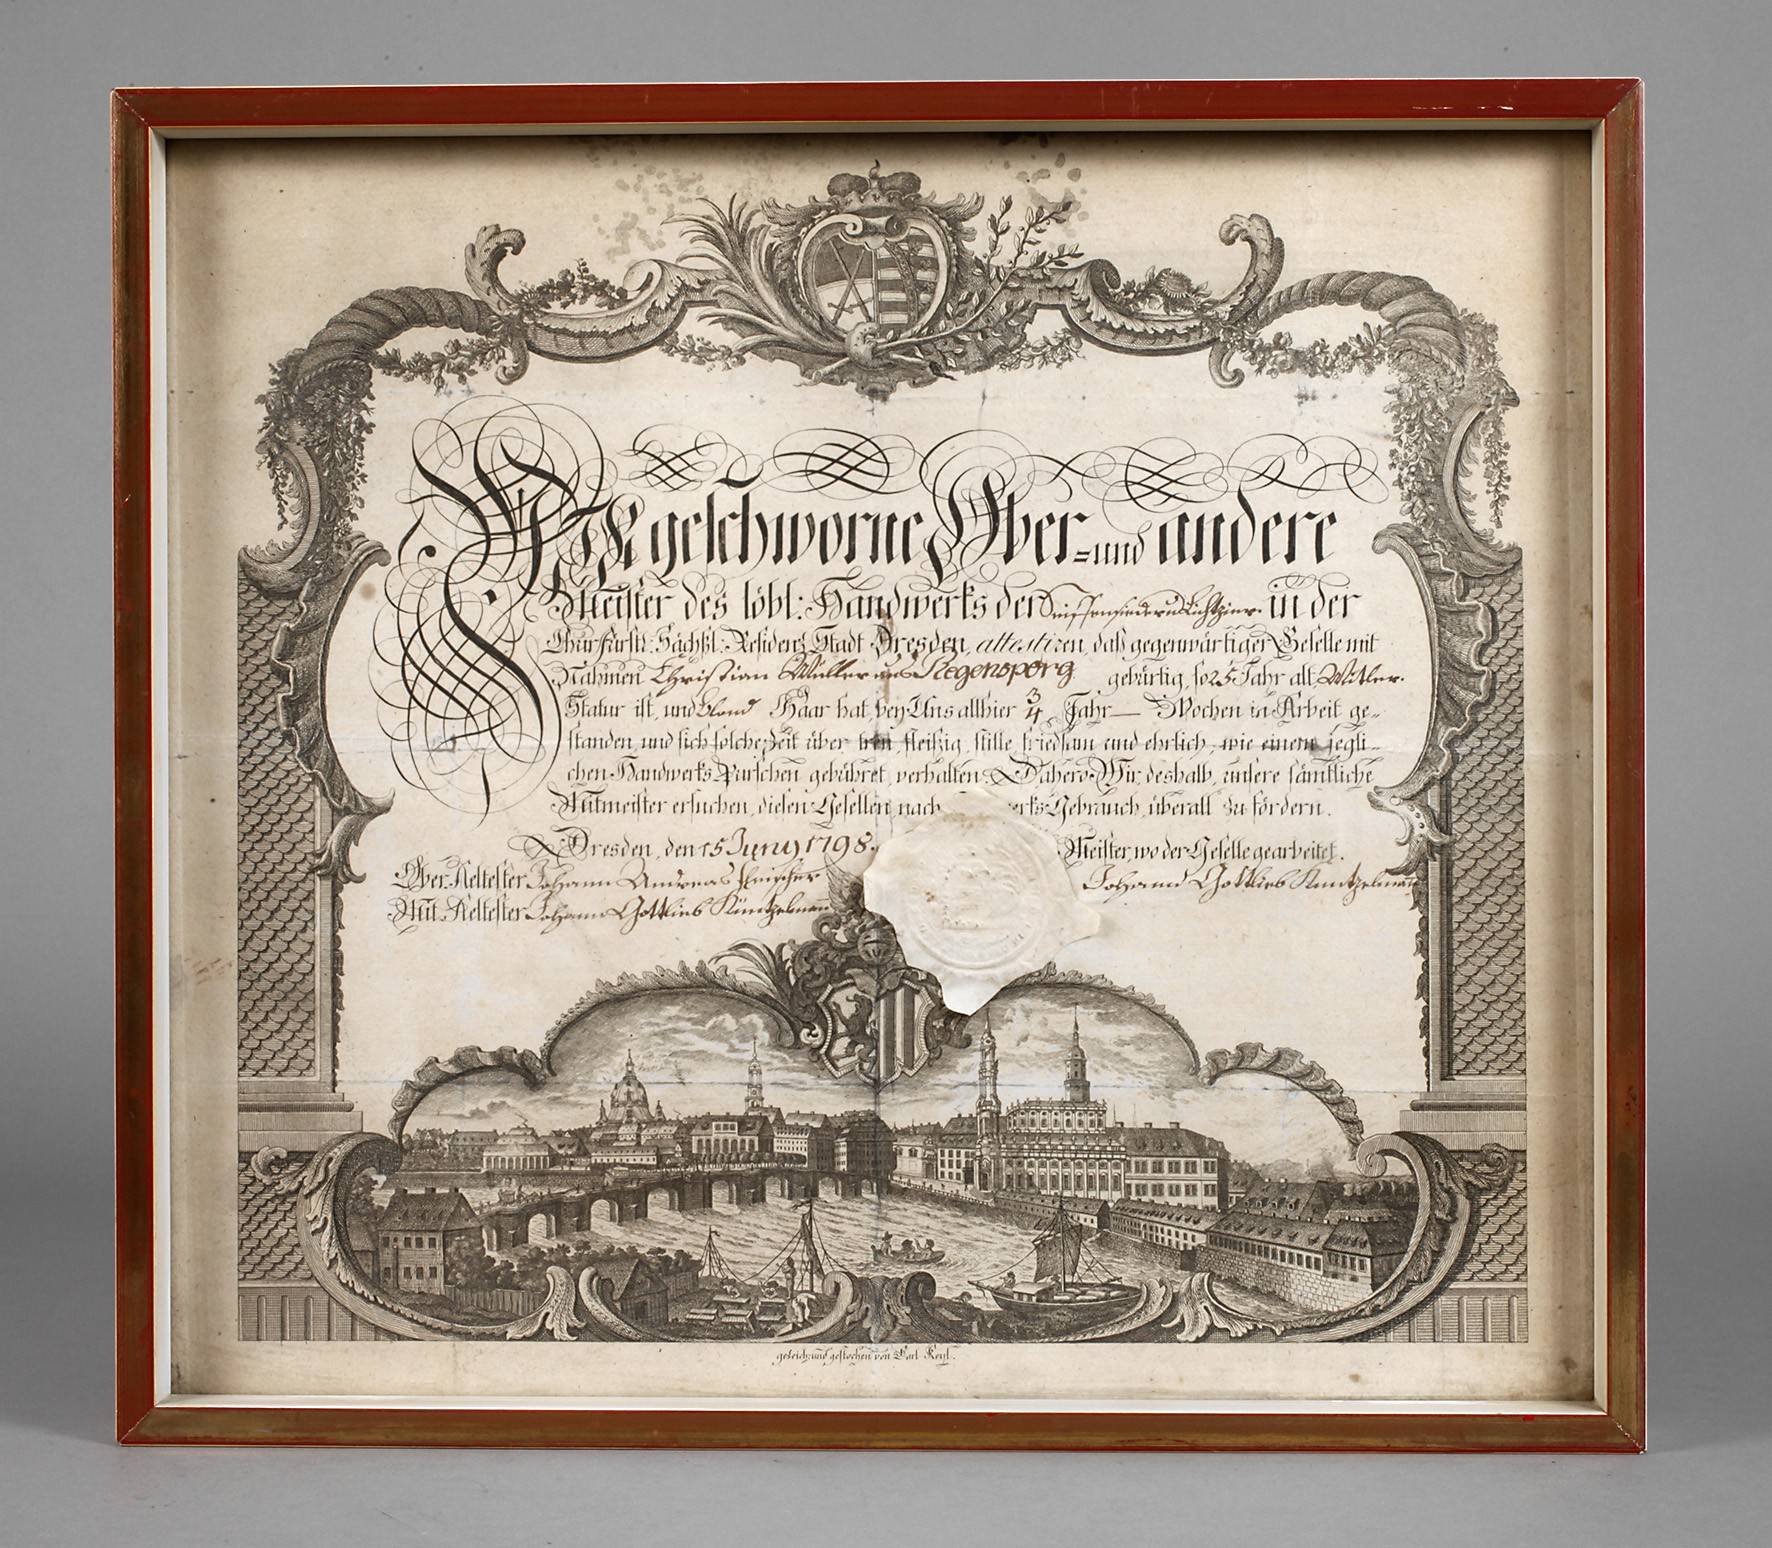 Wir geschworne Ober- und andere
Meister des löbl: Handwerks der Seiffensieder u Lichtzier. in der
Churfürstl: Sächßl: Residenz Stadt Dresden, attestiren, daß gegenwärtiger Geselle mit
Nahmen Christian Müller aus Regensporg gebürtig, so 25 Jahr alt, Mitler.
Statur ist, und blond Haar hat, bey Uns allhier 3/4 Jahr — Wochen in Arbeit ge-
standen, und sich solche Zeit über treu, fleißig, stille, friedsam und ehrlich, wie einem jegli-
chen Handwerks Purschen gebühret, verhalten. Dahero Wir, deshalb, unsere sämtliche
Mitmeister ersuchen, diesen Gesellen nach Gebrauch, überall zu fördern.
Dresden, den 15 Juny 1798.
Meister, wo der Geselle gearbeitet.
Ober-Aeltester Johann Andreas
Johann Gottlieb Küntzelmann
Mit-Aeltester Johann Gottlieb Küntzelmann
gezeich: und gestochen von Carl Keyl.